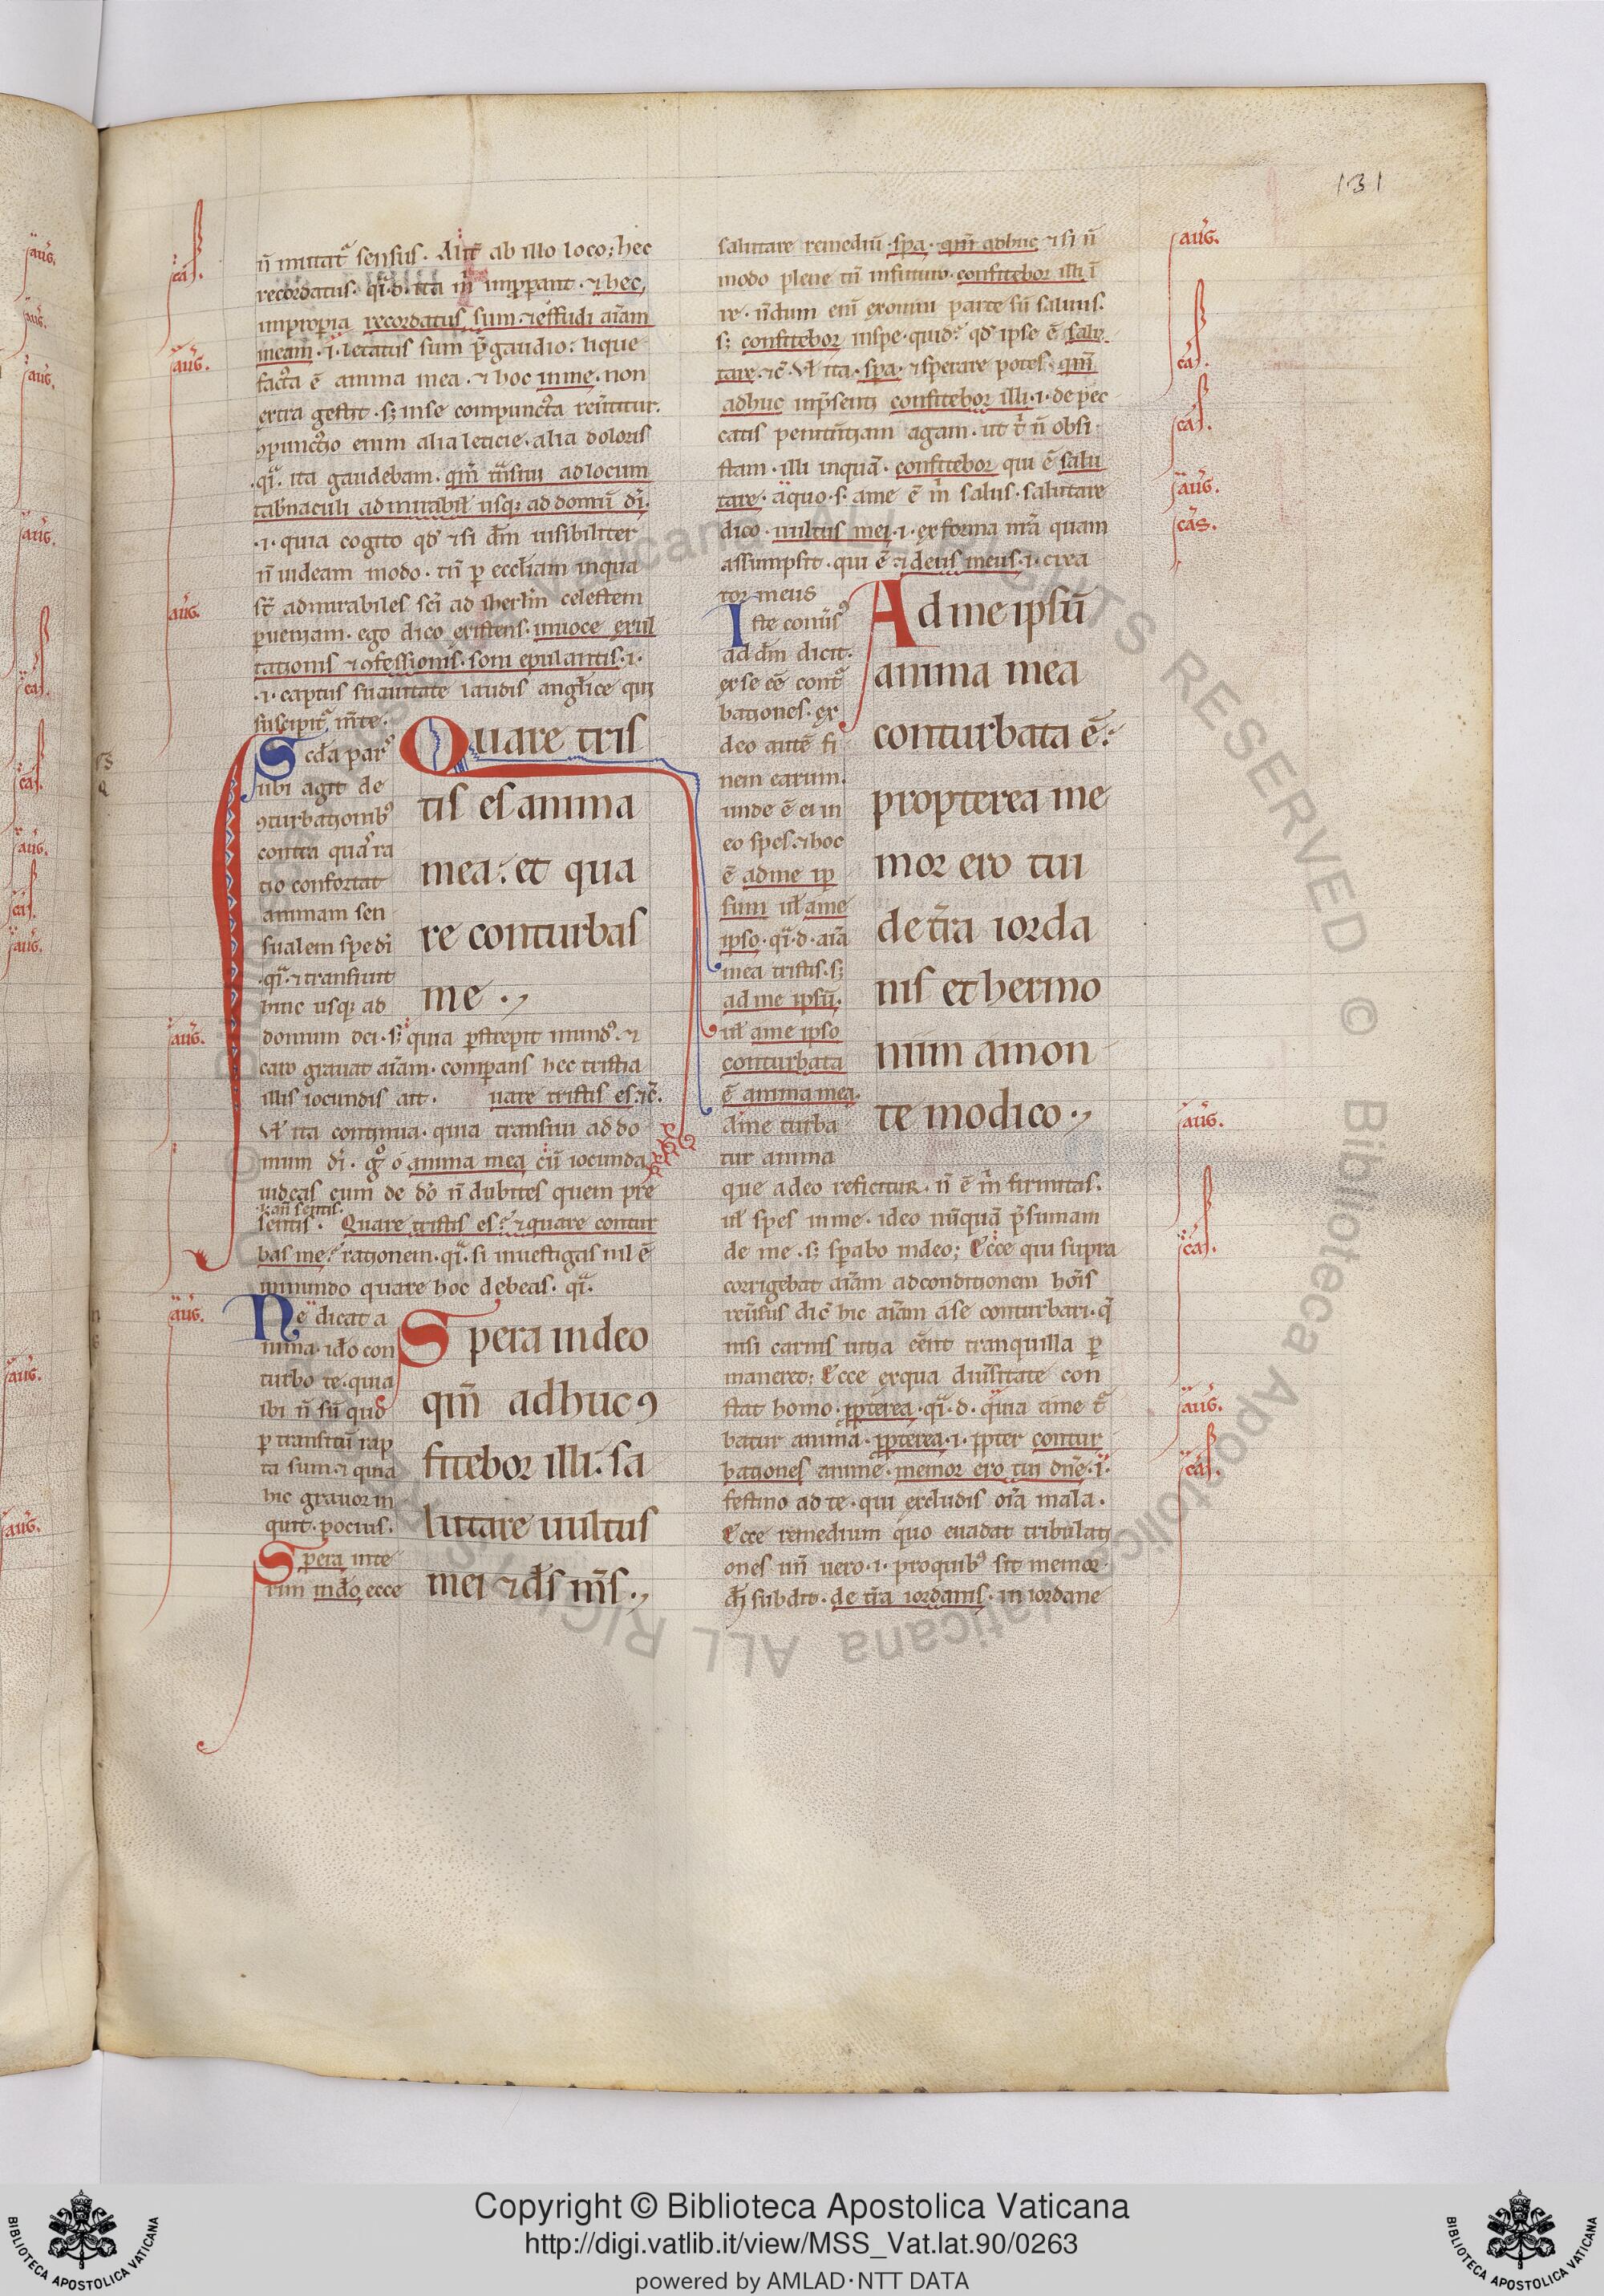 131
n̄ mutat᷑ sensus. Alit᷑ ab illo loco; hec
recordatus. q̄i. d. ita m̄ improꝑant. ⁊ hec
impropia recordatus sum. ⁊ effudi aīam
meam. i. letatus sum p̄ gaudio; lique
facta ē anima mea. ⁊ hoc in me. non
extra gestit. sꝫ in se compuncta reūtitur.
ꝯpunctio enim alia leticie. alia doloris
qͣ. ita gaudebam. qm̄ tͣnsiui ad locum
tab̄naculi admirabil̄ usqꝫ ad domū dī.
.i. quia cogito qđ ⁊ si dm̄ uisibiliter
n̄ uideam modo. tn̄ ꝑ eccl̄iam in qua
st̄ admirabiles sc̄i ad iherl̄m celestem
ꝑueniam. ego dico existens. in uoce exul
tationis ⁊ ꝯfessionis. soni epulantis. i.
.i. captus suauitate laudis angl̄ice qui
suscipit᷑ inte.
Scd̄a pars
ubi agit de
ꝯturbationibꝰ
contra quas ra
tio confortat
animam sen
sualem spe dī
.qͣ. ⁊ transiuit
hinc usqꝫ ad
Quare tris
tis es anima
mea: et qua
re conturbas
me.
domum dei. sꝫ quia ꝑstrepit mundꝰ. ⁊
caro grauat aīam. comparans hec tristia
illis iocundis ait. uare tristis es. ⁊c̄.
Vl̄ ita continua. quia transiui ad do
mum dī. gͦ o anima mea cū iocunda
uideas eum de dō n̄ dubites quem pre
sentis. Quare tristis es? ⁊ quare contur
bas me? rationem. qͣ. si inuestigas nil ē
in mundo quare hoc debeas. qͣ.
Ne dicat a
nima. id̄o con
turbo te. quia
ibi n̄ sū quo
ꝑ transitū rap
ta sum. ⁊ quia
hic grauor in
quit. pocius.
Spera inte
rim in dō. ecce
Spera in deo
qm̄ adhuc ꝯ
fitebor illi. sa
lutare uultus
mei ⁊ ds̄ ms̄.
salutare remediū. spa. qm̄ adhuc ⁊ si n̄
modo plene tn̄ in futuro. confitebor illi ī
re. n̄dum enī ex omni parte sū saluus.
sꝫ confitebor in spe. quid? qđ ipse ē salu
tare. ⁊c̄. Vl̄ ita. spa. ⁊ sperare potes. qm̄
adhuc in p̄senti confitebor illi. i. de pec
catis penitentiam agam. ut t̄ n̄ obsi
stam. illi inquā. confitebor qui ē salu
tare. a quo. s. a me ē m̄ salus. salutare
dico. uultus mei. i. ex forma mā quam
assumpsit. qui ē ⁊ deus meus. i. crea
tor meus
Iste conūsꝰ
ad dm̄ dicit.
ex se eē contͬ
bationes. ex
deo autē fi
nem earum.
unde ē ei in
eo spes. ⁊ hoc
ē ad me ip
sum ul̄ a me
ipso. qͣi. d. aīa
mea tristis. sꝫ
ad me ipsū.
ul̄ a me ipso
conturbata
ē anima mea.
A me turba
tur anima
Ad me ipsū
anima mea
conturbata ē:
propterea me
mor ero tui
de tr̄a iorda
nis et hermo
niim a mon
te modico.
que a deo reficitur. n̄ ē m̄ firmitas.
ul̄ spes in me. ideo nūquā p̄sumam
de me. sꝫ sꝑabo in deo; Ecce qui supra
corrigebat aīam ad conditionem hoīs
reūsus dic̄ hic aīam a se conturbari. q̄
nisi carnis uitia eēnt tranquilla ꝑ
maneret; Ecce ex qua diūsitate con
stat homo. ꝓpterea. qͣi. d. quia a me tͬ
batur anima. ꝓpterea. i. ꝓpter contur
bationes anime. memor ero tui dn̄e. i.
festino ad te. qui excludis oīa mala.
Ecce remedium quo euadat tribulati
ones un̄ uero. i. pro quibꝰ sit memor
subdit. de tr̄a iordanis. in iordane
ca.
aug.
aug.
aug.
aug.
aug.
ca.
ca.
aug.
cas.
aug.
ca.
aug.
ca.
Copyright © Biblioteca Apostolica Vaticana
http://digi.vatlib.it/view/MSS_Vat.lat.90/0263
powered by AMLAD·NTT DATA
BIBLIOTECA APOSTOLICA VATICANA
BIBLIOTECA APOSTOLICA VATICANA